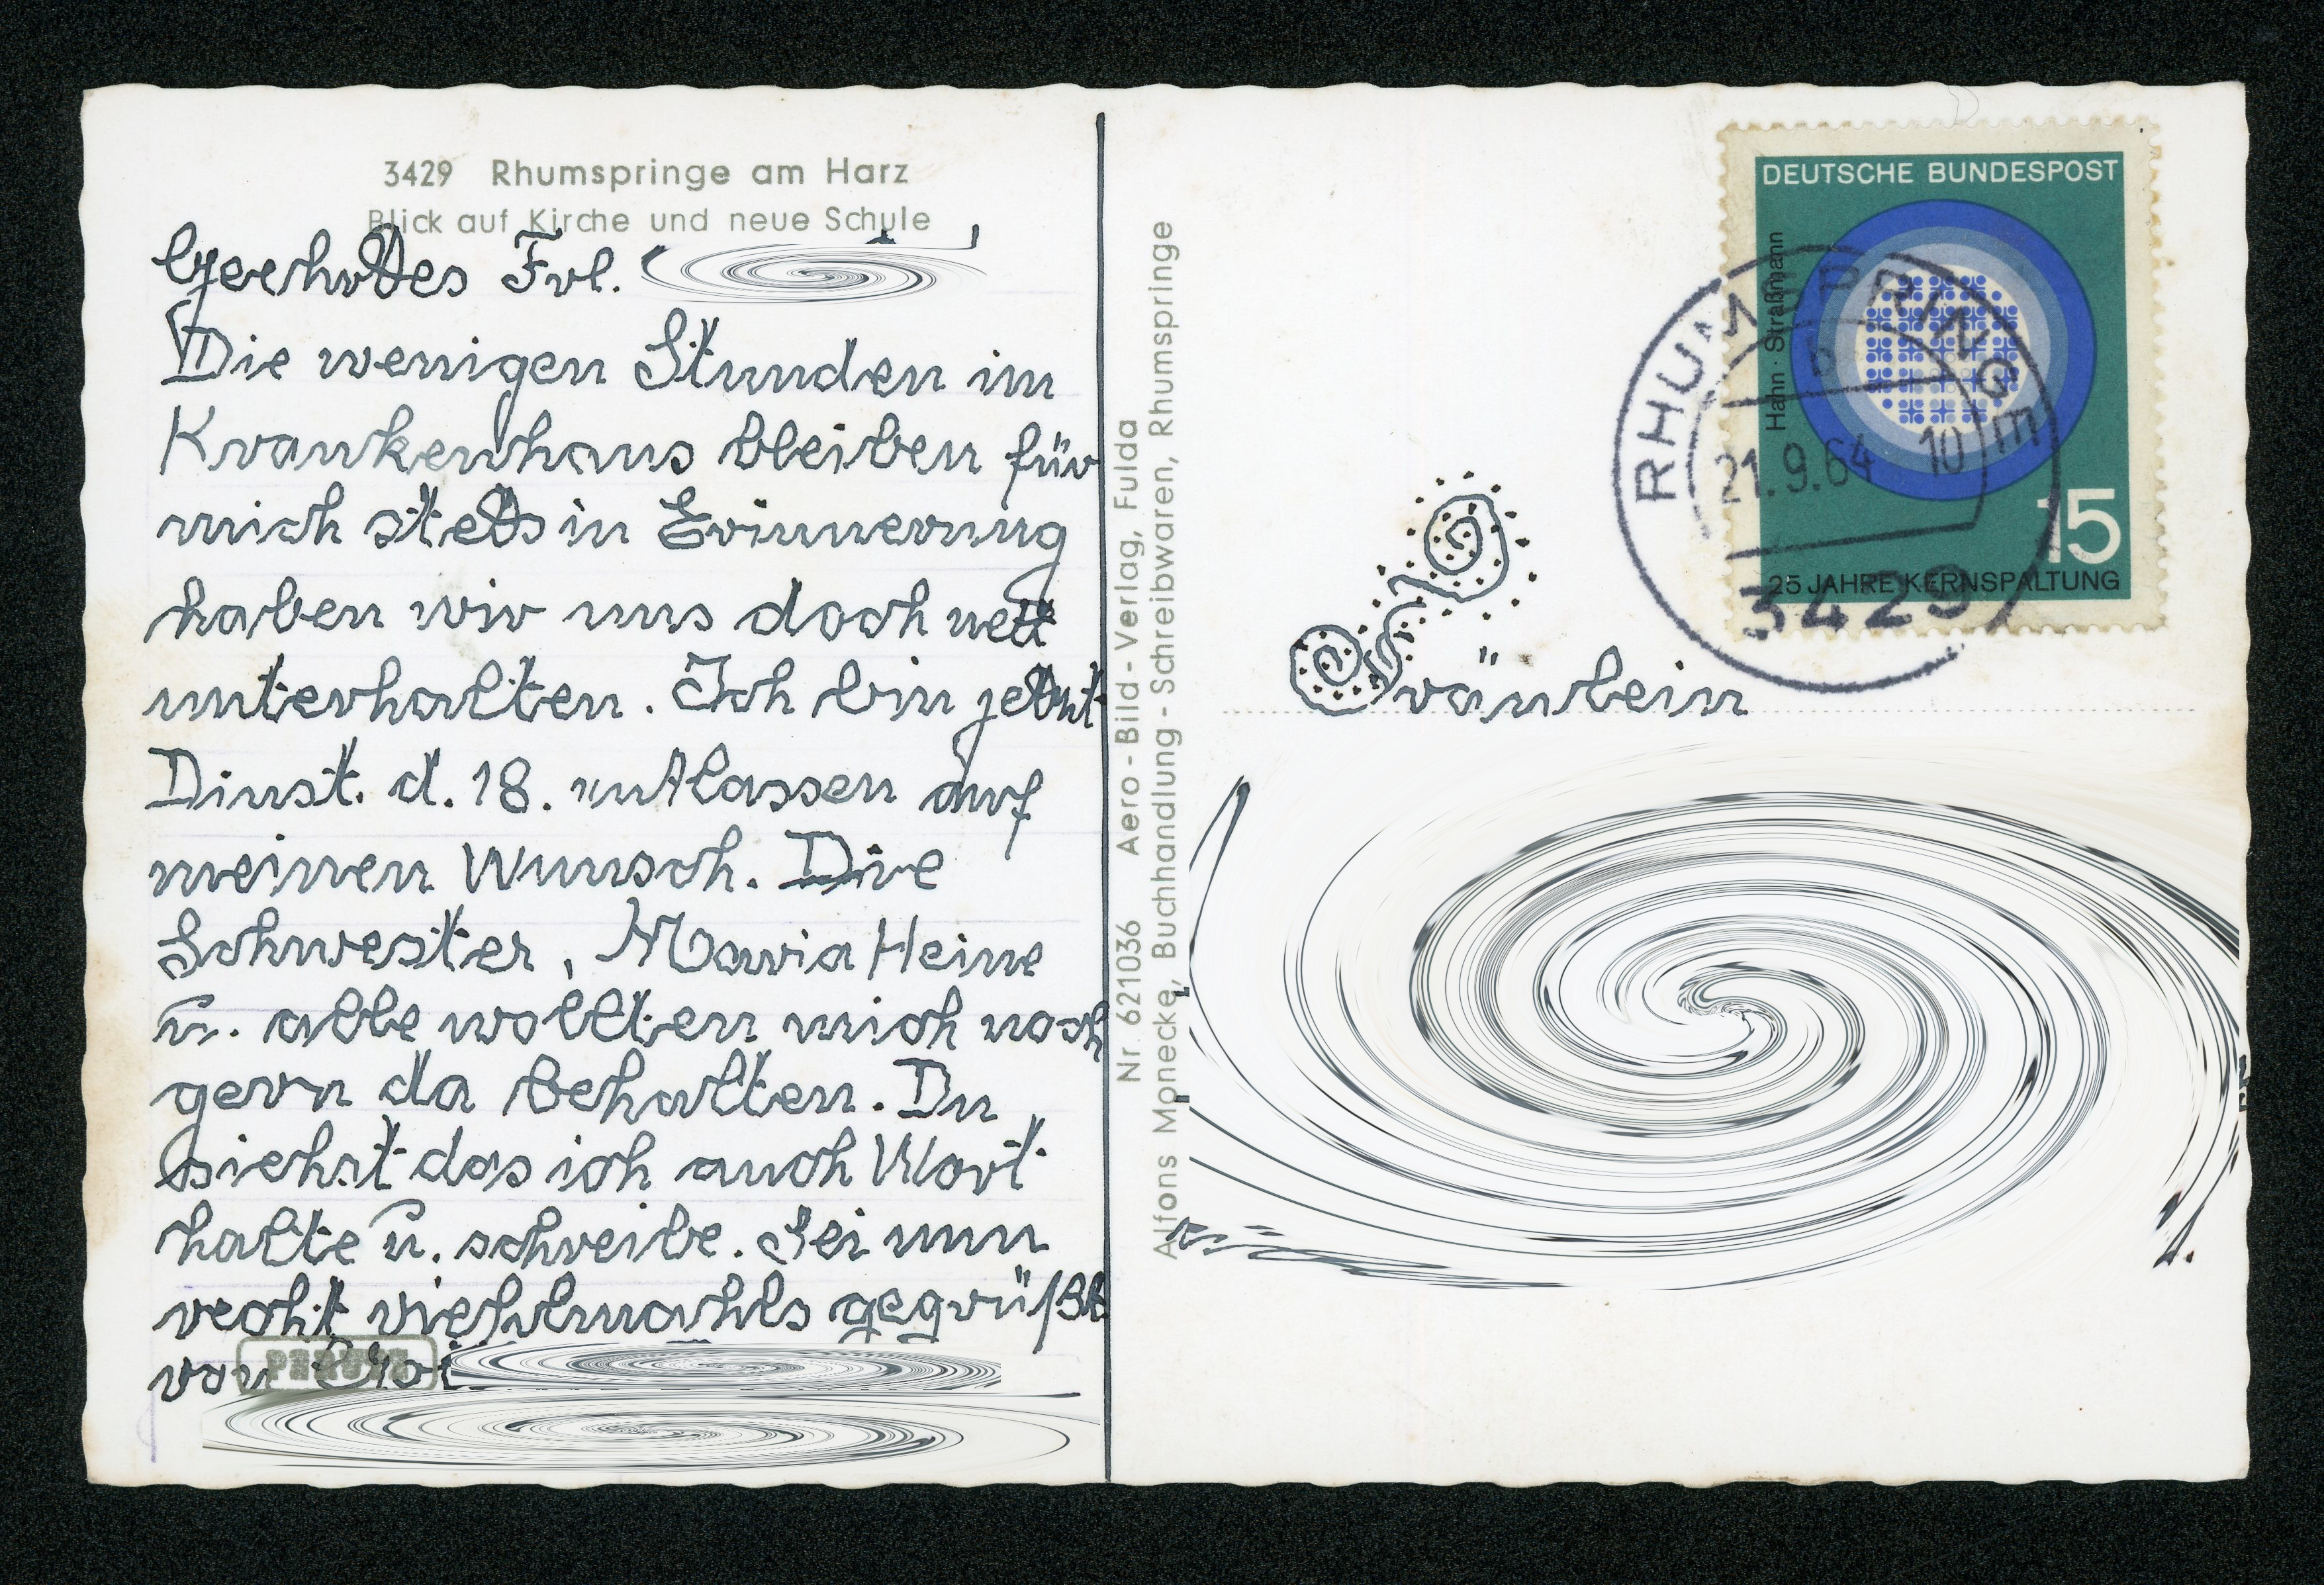 3429 Rhumspringe am Harz
Blick auf Kirche und neue Schule
Geehrtes Frl.
Die wenigen Stunden im
Krankenhaus bleiben für
mich stets in Erinnerung
haben wir uns doch nett
unterhalten. Ich bin
Dinst. d. 18. entlassen auf
meinen Wunsch. Die
Schwester, Maria Heine
u. alle wollten mich noch
gern da behalten. Du
siehst das ich auch Wort
halte u. schreibe. Sei nun
recht viehlmahls gegrüßt
von
Nr. 621036 Aero-Bild-Verlag, Fulda
Alfons Monecke, Buchhandlung - Schreibwaren, Rhumspringe
DEUTSCHE BUNDESPOST
Hahn · Straßmann
15
25 JAHRE KERNSPALTUNG
RHUMSPRINGE
b
21.9.64 10
3429
Fräulein